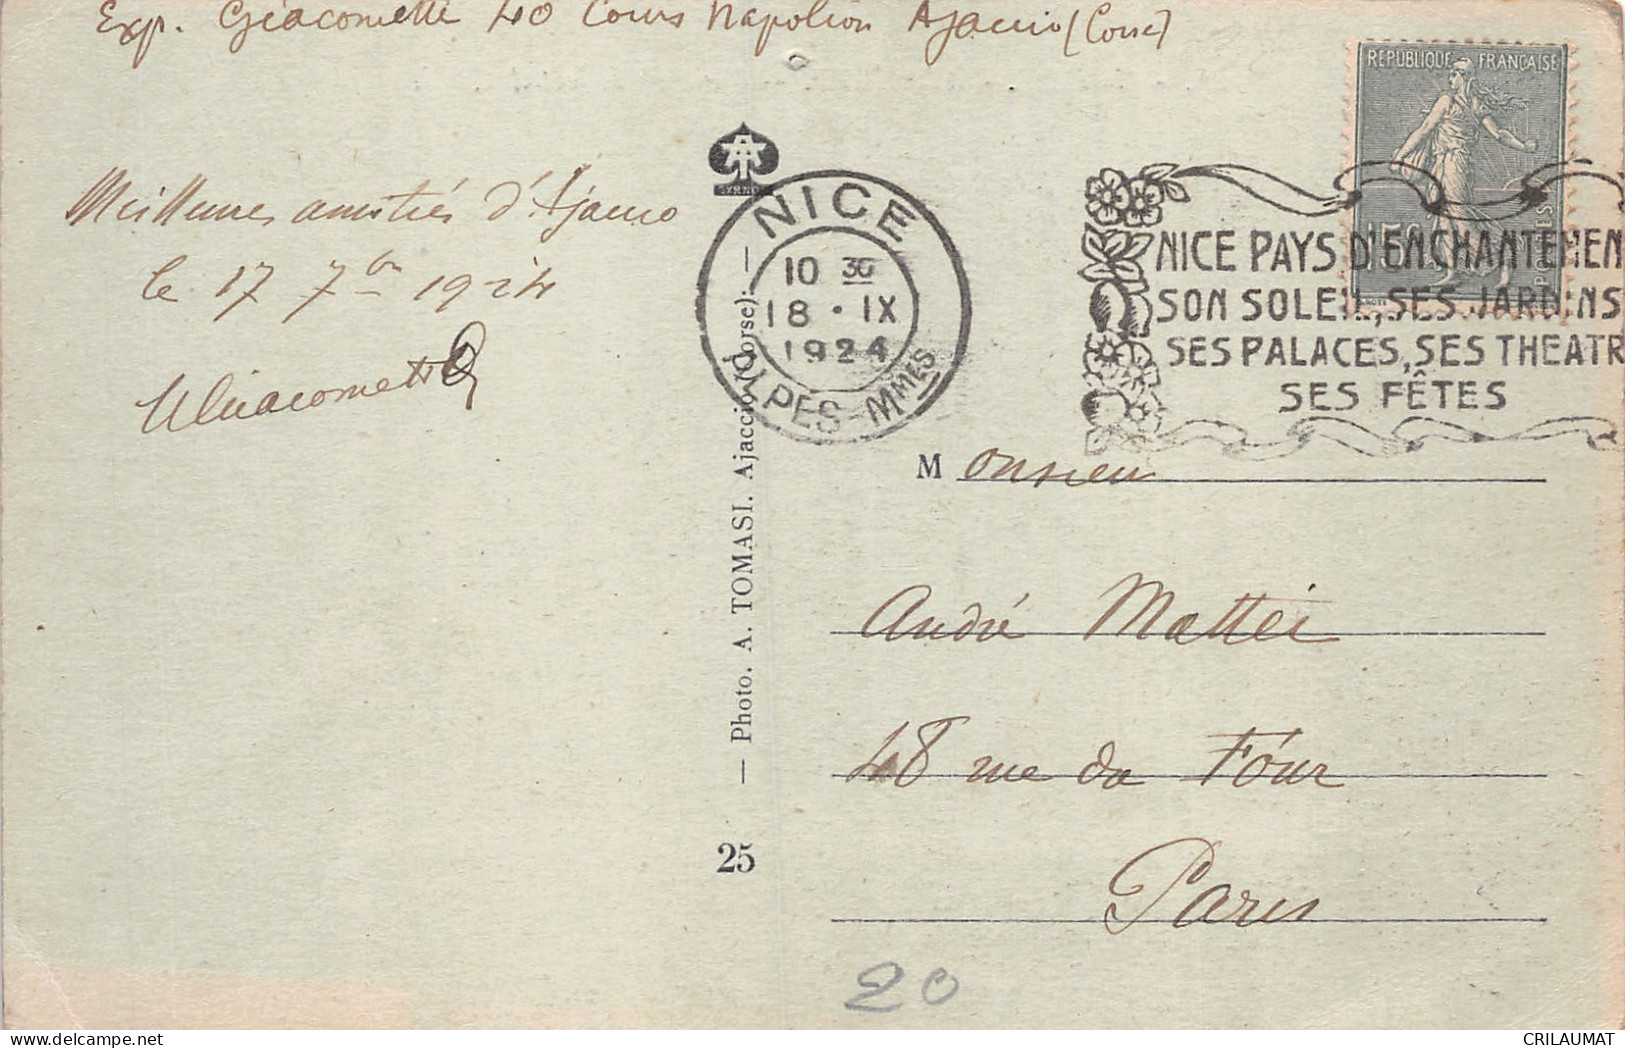 Exp. Giacometti 40 Cours Napoléon Ajaccio (Corse)
Meilleures amitiés d'Ajaccio
le 17 7bre 1924
Giacometti
NICE
10 30
18 • IX
1924
ALPES-MMES
RÉPUBLIQUE FRANÇAISE
15c
POSTES
NICE PAYS D'ENCHANTEMEN
SON SOLEIL, SES JARDINS
SES PALACES, SES THEATR
SES FÊTES
— Photo. A. TOMASI. Ajaccio (Corse). —
25
Monsieur
André Mattei
48 rue du Four
Paris
20
CRILAUMAT